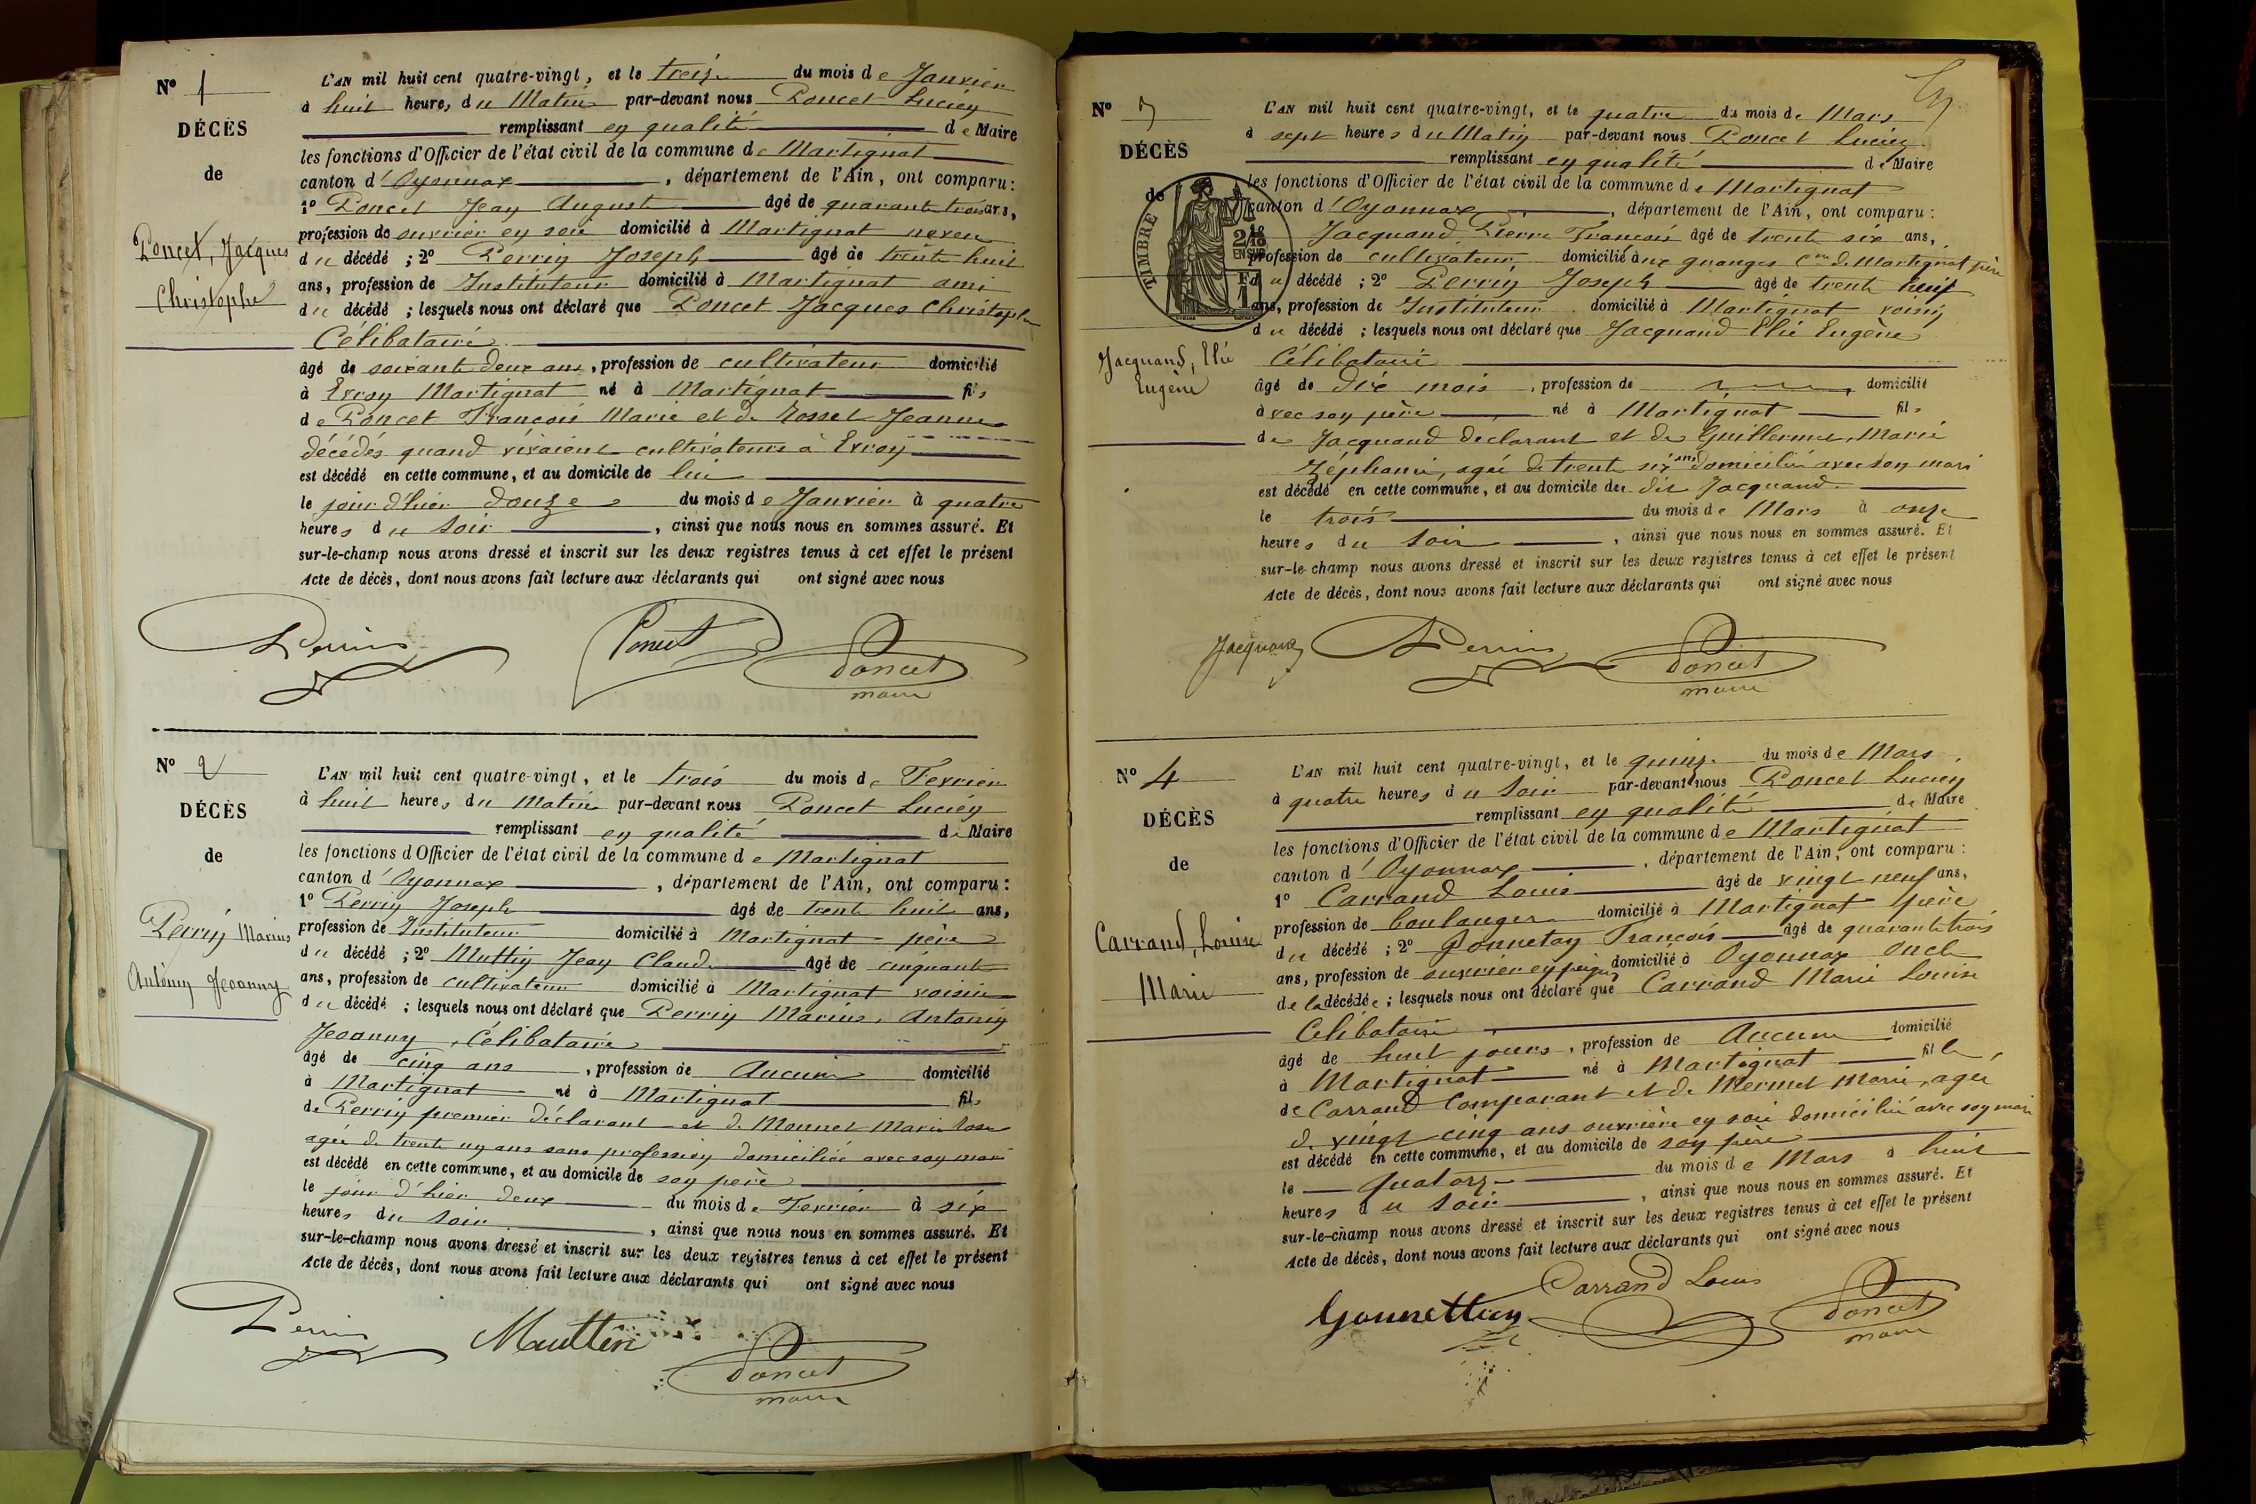 N° 1
DÉCÈS
de
Poncet, Jacques
Christophe
L'AN mil huit cent quatre-vingt, et le treize du mois de Janvier
à huit heures du Matin par-devant nous Poncet Lucien
remplissant en qualité de Maire
les fonctions d'Officier de l'état civil de la commune de Martignat
canton d'Oyonnax, département de l'Ain, ont comparu :
1° Poncet Jean August âgé de quarante trois ans,
profession de ouvrier en soie domicilié à Martignat neveu
du décédé ; 2° Perrin Joseph âgé de trente huit
ans, profession de Instituteur domicilié à Martignat ami
du décédé ; lesquels nous ont déclaré que Poncet Jacques Christophe
Célibataire
âgé de soixante deux ans, profession de cultivateur domicilié
à Evron Martignat né à Martignat fils
de Poncet François Marie et de Rosset Jeanne
décédés quand vivaient cultivateurs à Evron
est décédé en cette commune, et au domicile de lui
le jour d'hier douze du mois de Janvier à quatre
heures du soir, ainsi que nous nous en sommes assuré. Et
sur-le-champ nous avons dressé et inscrit sur les deux registres tenus à cet effet le présent
Acte de décès, dont nous avons fait lecture aux déclarants qui ont signé avec nous
Perrin Poncet Poncet
maire
N° 2
DÉCÈS
de
Perrin Marius
Antonin Jeanny
L'AN mil huit cent quatre-vingt, et le trois du mois de Fevrier
à huit heures du Matin par-devant nous Poncet Lucien
remplissant en qualité de Maire
les fonctions d'Officier de l'état civil de la commune de Martignat
canton d'Oyonnax, département de l'Ain, ont comparu :
1° Perrin Joseph âgé de trente huit ans,
profession de Instituteur domicilié à Martignat père
du décédé ; 2° Muttin Jean Claude âgé de cinquante
ans, profession de cultivateur domicilié à Martignat voisin
du décédé ; lesquels nous ont déclaré que Perrin Marius, Antonin
Jeanny, Célibataire
âgé de cinq ans, profession de Aucune domicilié
à Martignat né à Martignat fils
de Perrin premier déclarant et de Monnet Marie Rose
agée de trente un ans sans profession domiciliée avec son mari
est décédé en cette commune, et au domicile de son père
le jour d'hier deux du mois de Fevrier à six
heures du soir, ainsi que nous nous en sommes assuré. Et
sur-le-champ nous avons dressé et inscrit sur les deux registres tenus à cet effet le présent
Acte de décès, dont nous avons fait lecture aux déclarants qui ont signé avec nous
Perrin Muttin Poncet
maire
N° 3
DÉCÈS
de
TIMBRE
Jacquand, Elie
Eugène
L'AN mil huit cent quatre-vingt, et le quatre du mois de Mars
à sept heures du Matin par-devant nous Poncet Lucien
remplissant en qualité de Maire
les fonctions d'Officier de l'état civil de la commune de Martignat
canton d'Oyonnax, département de l'Ain, ont comparu :
Jacquand Pierre François âgé de trente six ans,
profession de cultivateur domicilié aux granges Cne de Martignat père
du décédé ; 2° Perrin Joseph âgé de trente huit
ans, profession de Instituteur domicilié à Martignat voisin
du décédé ; lesquels nous ont déclaré que Jacquand Elie Eugène
Célibataire
âgé de dix mois, profession de domicilié
avec son père né à Martignat fils
de Jacquand declarant et de Guillermet, Marie
Zéphanie, agée de trente six ans domiciliée avec son mari
est décédé en cette commune, et au domicile du dit Jacquand
le trois du mois de Mars à onze
heures du soir, ainsi que nous nous en sommes assuré. Et
sur-le-champ nous avons dressé et inscrit sur les deux registres tenus à cet effet le présent
Acte de décès, dont nous avons fait lecture aux déclarants qui ont signé avec nous
Jacquand Perrin Poncet
maire
N° 4
DÉCÈS
de
Carrand, Louise
Marie
L'AN mil huit cent quatre-vingt, et le quinze du mois de Mars
à quatre heures du soir par-devant nous Poncet Lucien
remplissant en qualité de Maire
les fonctions d'Officier de l'état civil de la commune de Martignat
canton d'Oyonnax, département de l'Ain, ont comparu :
1° Carrand Louis âgé de vingt neuf ans,
profession de boulanger domicilié à Martignat père
du décédé ; 2° Gonnetan François âgé de quarante trois
ans, profession de ouvrier en peignes domicilié à Oyonnax oncle
de la décédée ; lesquels nous ont déclaré que Carrand Marie Louise
Célibataire
âgé de huit jours, profession de Aucune domicilié
à Martignat né à Martignat fille
de Carrand Comparant et de Mermet Marie, agée
de vingt cinq ans ouvrière en soie domiciliée avec son mari
est décédé en cette commune, et au domicile de son père
le quatorze du mois de Mars à huit
heures du soir, ainsi que nous nous en sommes assuré. Et
sur-le-champ nous avons dressé et inscrit sur les deux registres tenus à cet effet le présent
Acte de décès, dont nous avons fait lecture aux déclarants qui ont signé avec nous
Carrand Louis
Gonnettan Poncet
maire